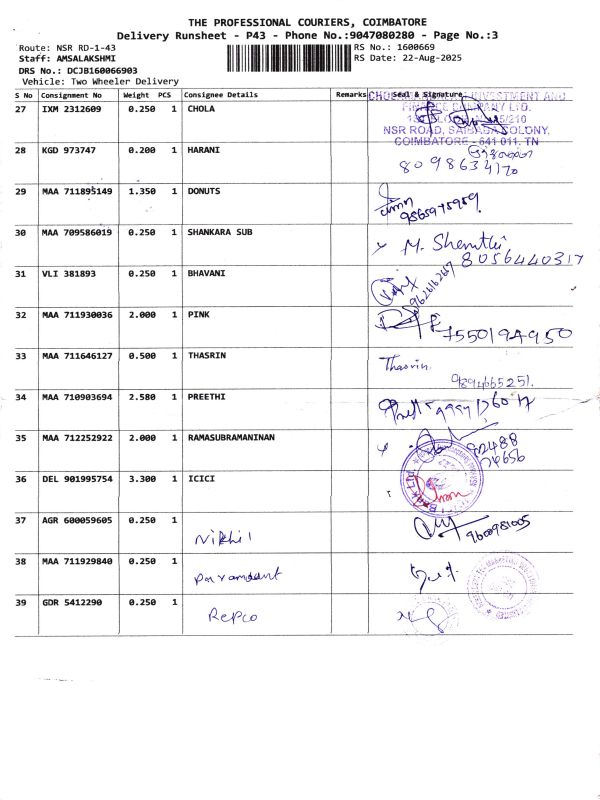 THE PROFESSIONAL COURIERS, COIMBATORE
Delivery Runsheet - P43 - Phone No.:9047080280 - Page No.:3
Route: NSR RD-1-43
RS No.: 1600669
Staff: AMSALAKSHMI
RS Date: 22-Aug-2025
DRS No.: DCJB160066903
Vehicle: Two Wheeler Delivery
S No Consignment No Weight PCS Consignee Details Remarks Seal & Signature
27 IXM 2312609 0.250 1 CHOLA
INVESTMENT AND
COMPANY LTD.
NSR ROAD, SAIBABA COLONY,
COIMBATORE - 641 011. TN
28 KGD 973747 0.200 1 HARANI
8098634170
29 MAA 711895149 1.350 1 DONUTS
9865975959
30 MAA 709586019 0.250 1 SHANKARA SUB
M. Shenthi
8056440317
31 VLI 381893 0.250 1 BHAVANI
32 MAA 711930036 2.000 1 PINK
7550194950
33 MAA 711646127 0.500 1 THASRIN
Thasrin
9894665251.
34 MAA 710903694 2.580 1 PREETHI
35 MAA 712252922 2.000 1 RAMASUBRAMANINAN
92488
74656
36 DEL 901995754 3.300 1 ICICI
37 AGR 600059605 0.250 1
Nikhil
9600981005
38 MAA 711929840 0.250 1
Paramount
39 GDR 5412290 0.250 1
Repco